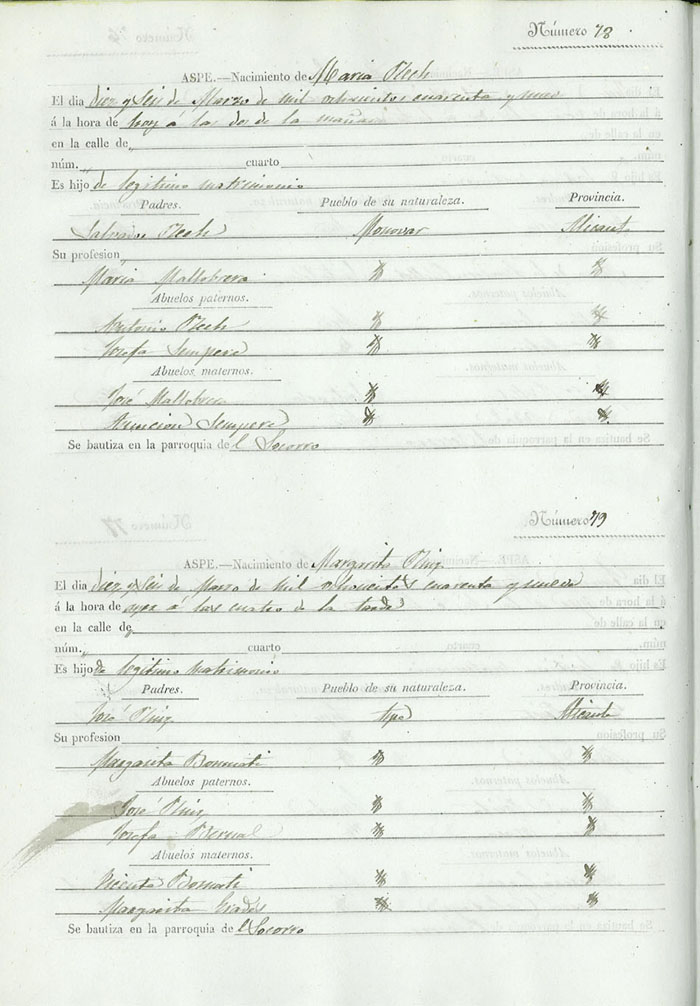 Número 78
ASPE.—Nacimiento de Maria Plech
El dia diez y Seis de Marzo de mil ochocientos cuarenta y nueve
á la hora de hoy á las dos de la mañana
en la calle de „
núm. „ cuarto
Es hijo de legitimo matrimonio
Padres. Pueblo de su naturaleza. Provincia.
Salvador Plech Monovar Alicante
Su profesion „
Maria Mallebrera
Abuelos paternos.
Antonio Plech
Josefa Sempere
Abuelos maternos.
José Mallebrera
Asuncion Sempere
Se bautiza en la parroquia de l Socorro
Número 79
ASPE.—Nacimiento de Margarita
El dia diez y Seis de Marzo de mil ochocientos cuarenta y nueve
á la hora de ayer á las cuatro de la tarde
en la calle de „
núm. „ cuarto
Es hijo de legitimo matrimonio
Padres. Pueblo de su naturaleza. Provincia.
José Alicante
Su profesion
Margarita Bonmati
Abuelos paternos.
José
Josefa Bernal
Abuelos maternos.
Vicente Bonmati
Margarita
Se bautiza en la parroquia de l Socorro